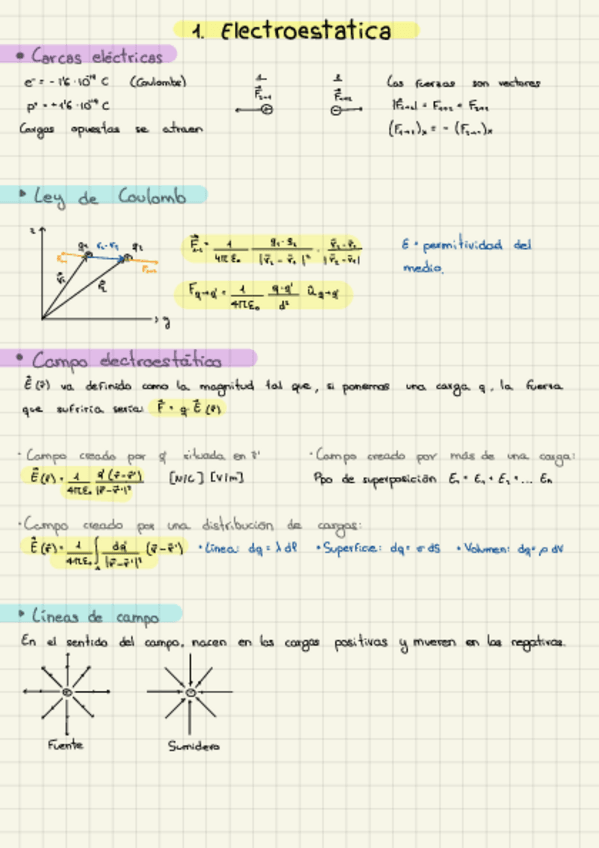 1. Electroestatica
• Carcas eléctricas
e⁻ = -1'6 · 10⁻¹⁹ C (Coulombs)
p⁺ = +1'6 · 10⁻¹⁹ C
Cargas opuestas se atraen
1 2
F⃗₂→₁ F⃗₁→₂
Las fuerzas son vectores
|F⃗₁→₂| = F₁→₂ = F₂→₁
(F₁→₂)ₓ = - (F₂→₁)ₓ
Ley de Coulomb
z q₁ r₂-r₁ q₂
r⃗₁ r⃗₂ y
1 / 4πε₀ · q₁·q₂ / |r⃗₂ - r⃗₁|² · r⃗₂-r⃗₁ / |r⃗₂-r⃗₁|
F q→q' = 1 / 4πε₀ q·q' / d² û q→q'
ε = permitividad del
medio.
• Campo electroestático
E⃗(r⃗) va definido como la magnitud tal que, si ponemos una carga q, la fuerza
que sufriría sería: F⃗ = q · E⃗(r⃗)
· Campo creado por q' situada en r⃗'
E⃗(r⃗) = 1 / 4πε₀ q'(r⃗-r⃗') / |r⃗-r⃗'|³ [N/C] [V/m]
· Campo creado por más de una carga:
Ppo de superposición
· Campo creado por una distribución de cargas:
E⃗(r⃗) = 1 / 4πε₀ ∫ dq' / |r⃗-r⃗'|³ (r⃗-r⃗') • Línea: dq = λ dl • Superficie: dq = σ dS • Volumen: dq = ρ dV
Líneas de campo
En el sentido del campo, nacen en las cargas positivas y mueren en las negativas.
Fuente Sumidero